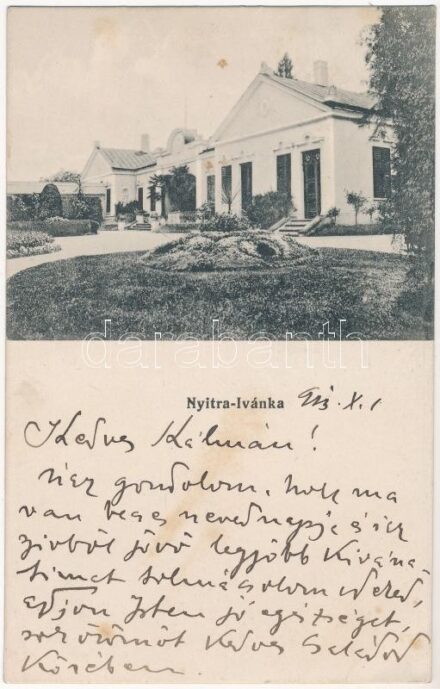 darabanth
Nyitra-Ivánka 913. X. 1
Kedves Kálmán!
Úgy gondolom, hogy ma
van becses neved napja és így
szivből jövő legjobb kiváná-
simat tolmácsolom neked,
adjon Isten jó egészséget,
sok örömöt kedves családod
körében.